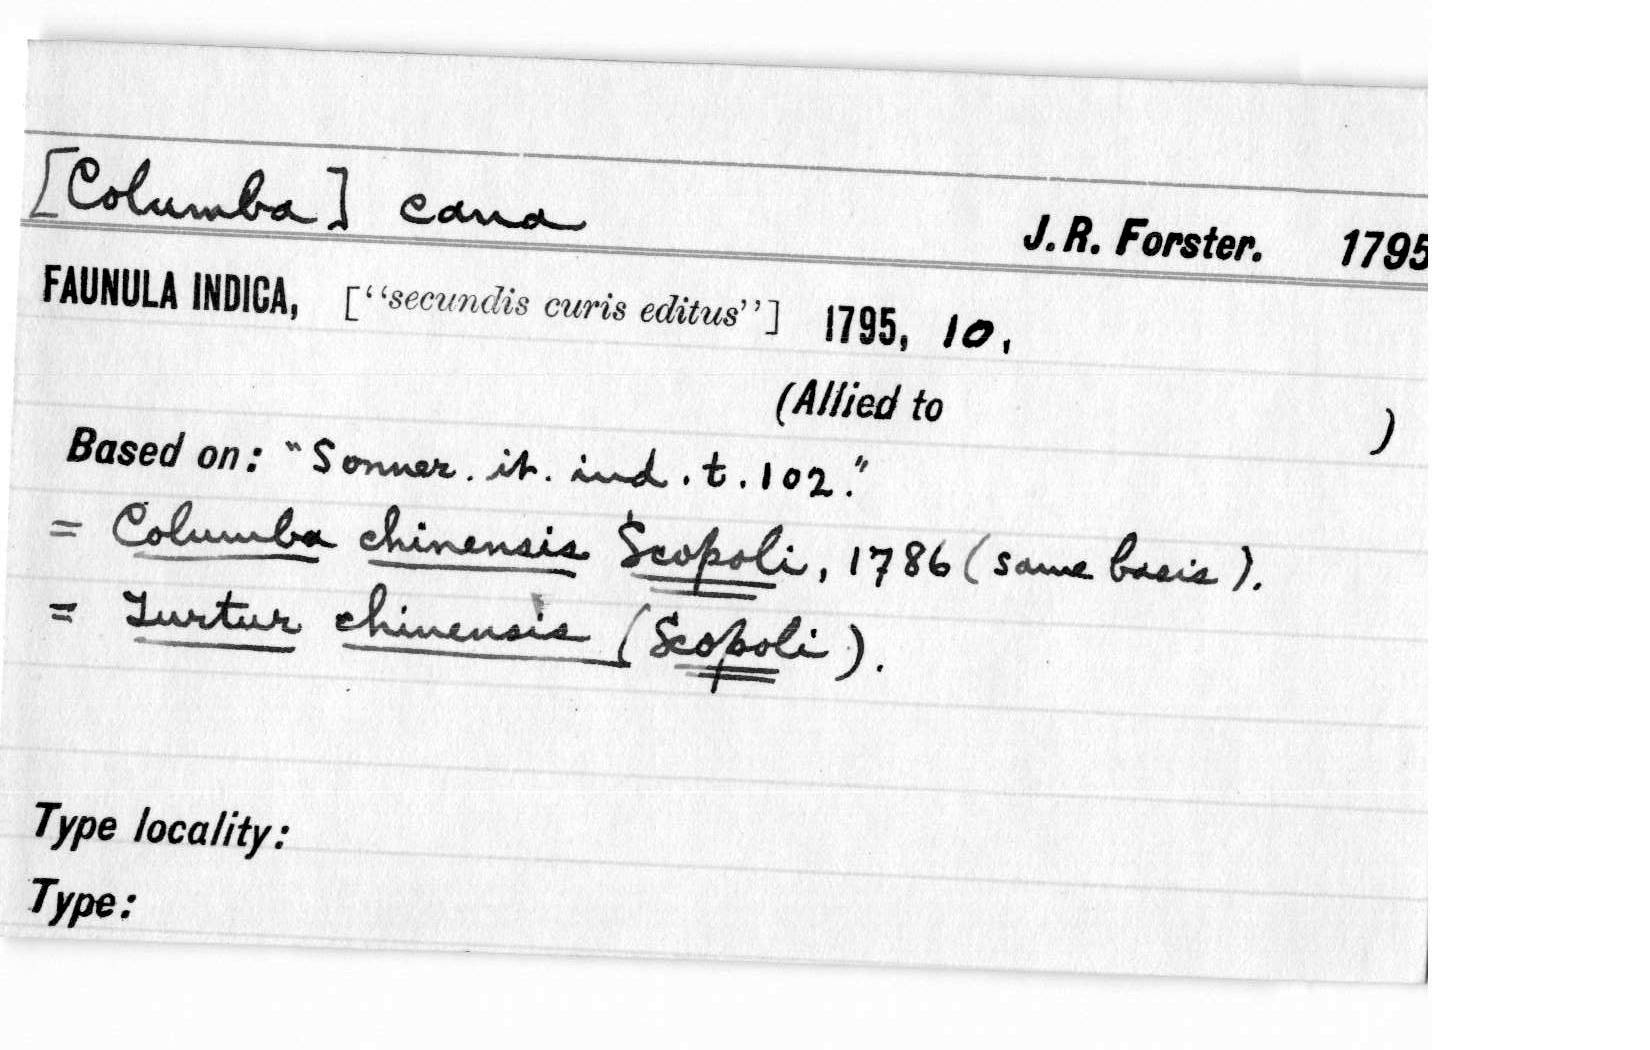 [Columba] cana J. R. Forster. 1795
FAUNULA INDICA, [“secundis curis editus”] 1795, 10.
(Allied to )
Based on: "Sonner. it. ind. t. 102."
= Columba chinensis Scopoli, 1786 (same basis).
= Turtur chinensis (Scopoli).
Type locality:
Type: